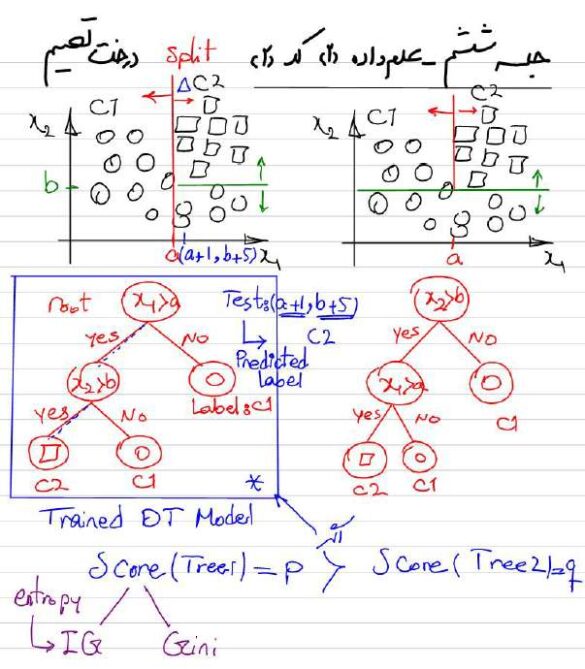 جلسه ششم - علم داده (2) کد (2)
درخت تصمیم
split
C1
ΔC2
x2
b
a
(a+1, b+5)
x1
C1
C2
x2
a
x1
root
x1>a
yes
No
x2>b
Label: C1
yes
No
C2
C1
*
Test: (a+1, b+5)
C2
Predicted
Label
x2>b
yes
No
x1>a
C1
yes
No
C2
C1
Trained DT Model
Score(Tree1) = P > Score(Tree2) = q
entropy
IG
Gini